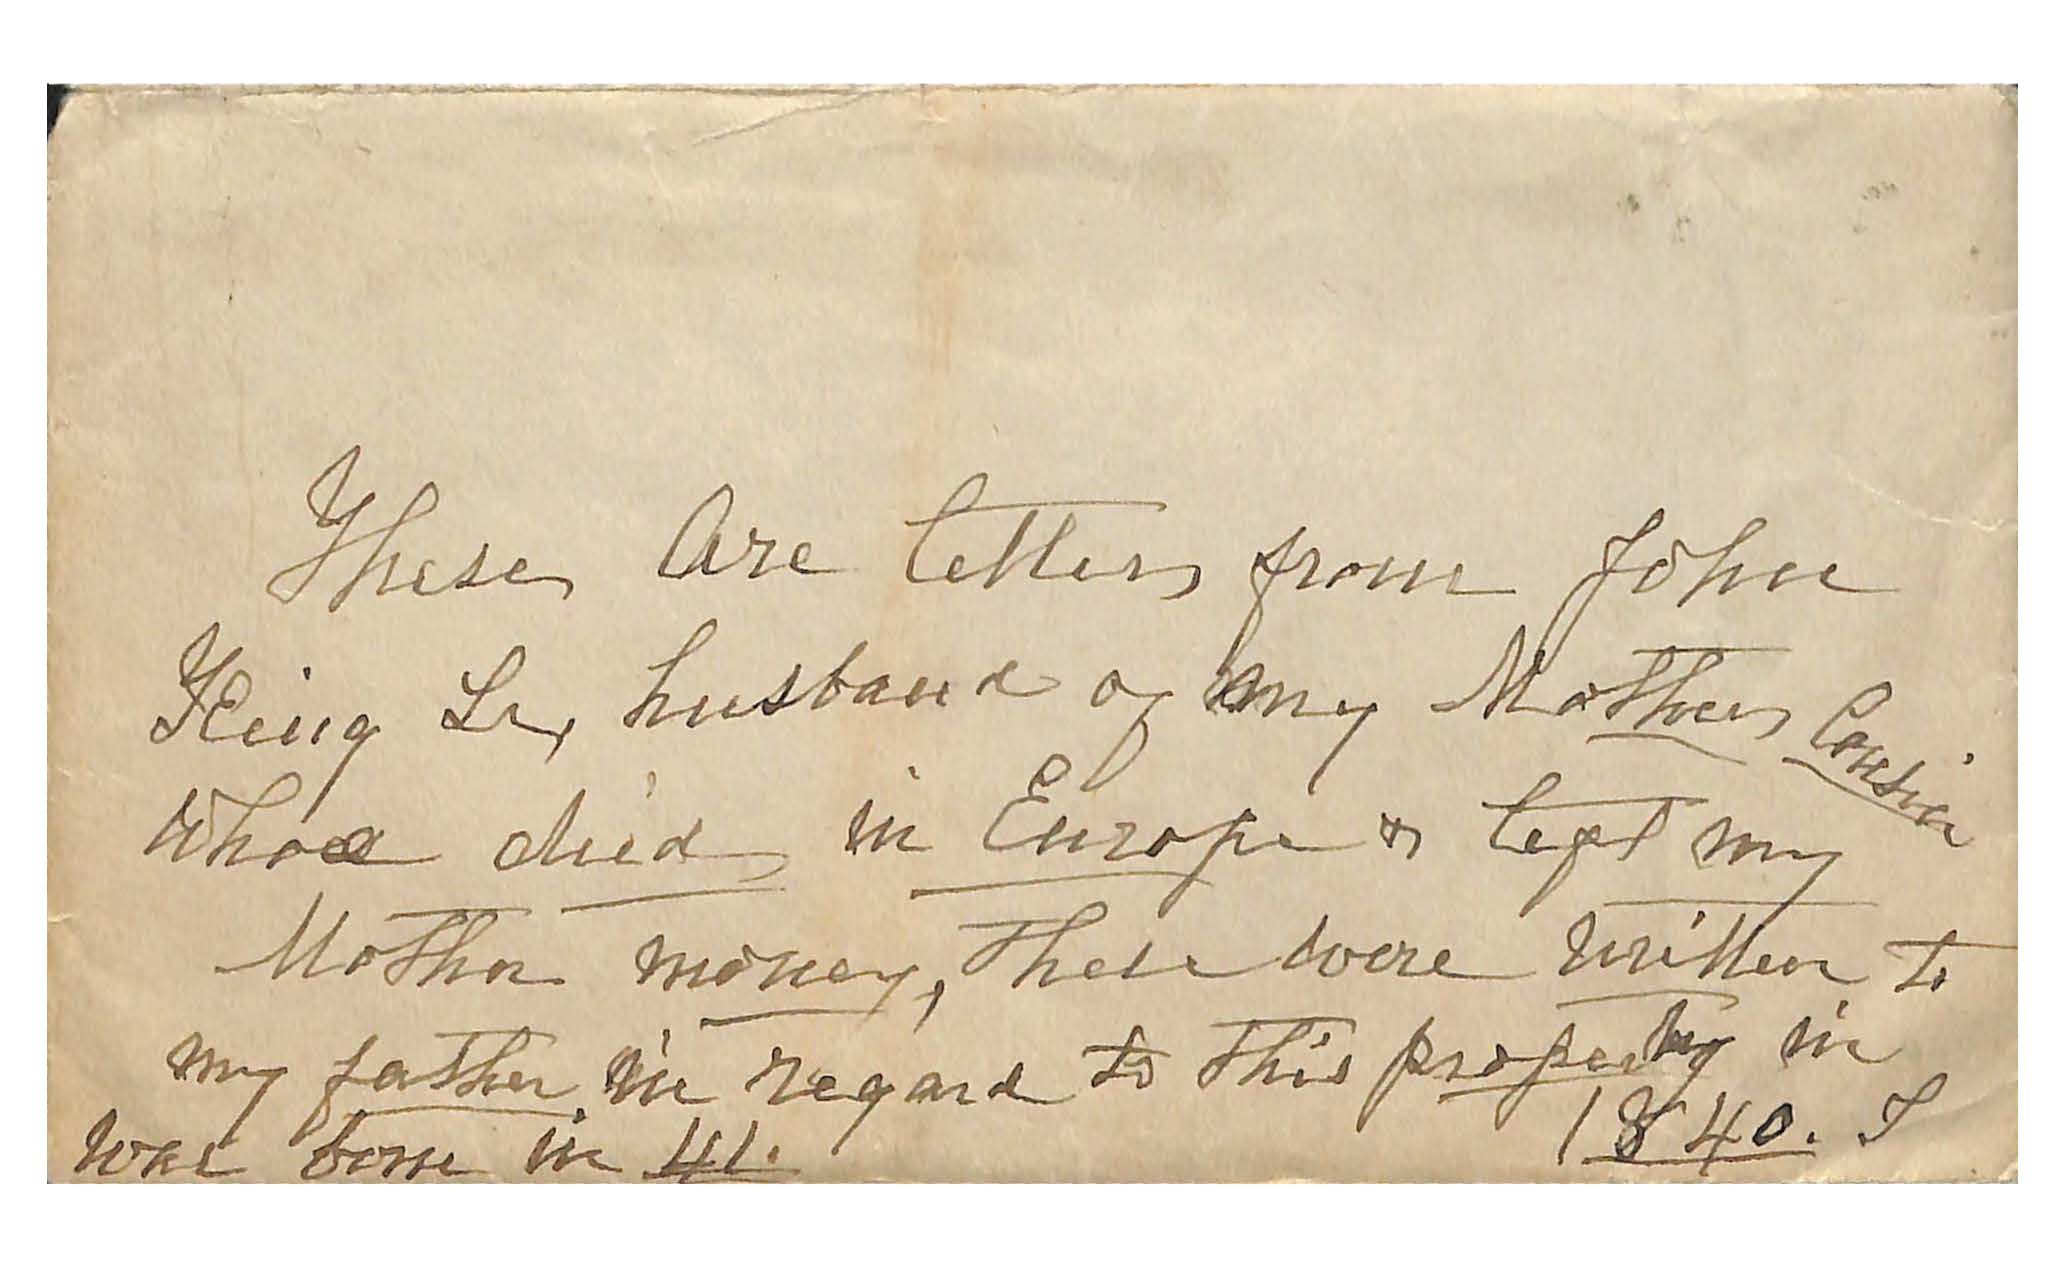 These are letters from John
King Sr, husband of my Mothers Cousin
who died in Europe & left my
Mother money, These were written to
my father in regard to this property in
1840. I
was born in 41.